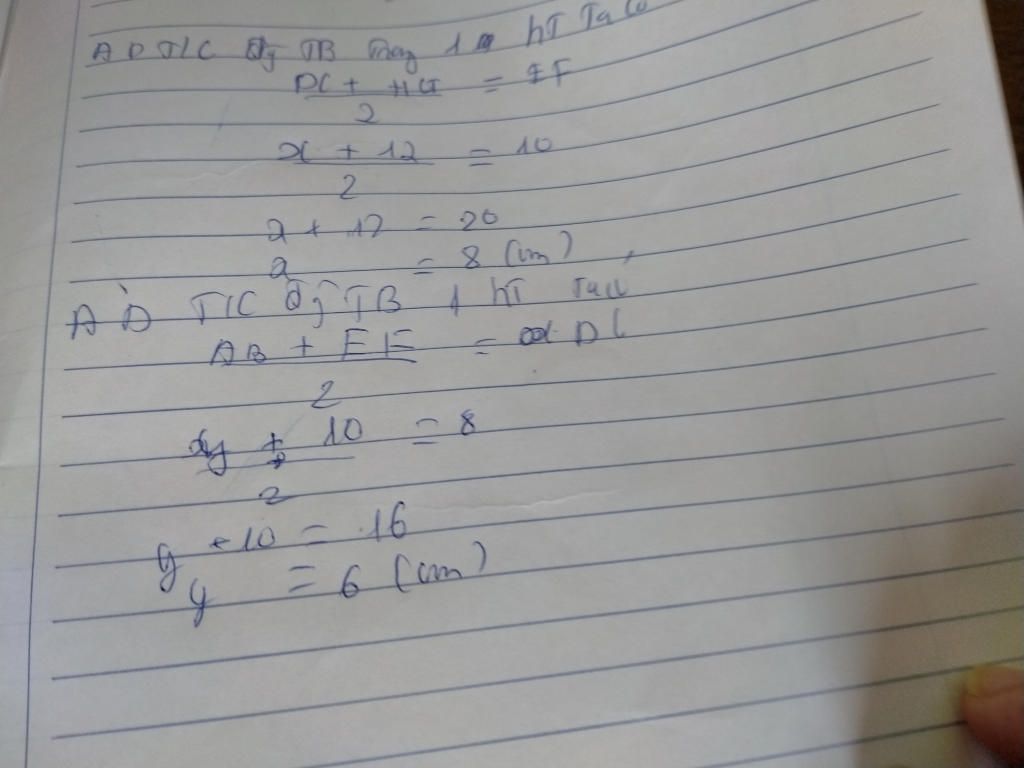 AD T/C Đg TB 1 hT Ta có
DC + HG = EF
2
x + 12 = 10
2
x + 12 = 20
x = 8 (cm)
AD T/C Đg TB 1 hT Ta có
AB + EF = DC
2
y + 10 = 8
2
y + 10 = 16
y = 6 (cm)